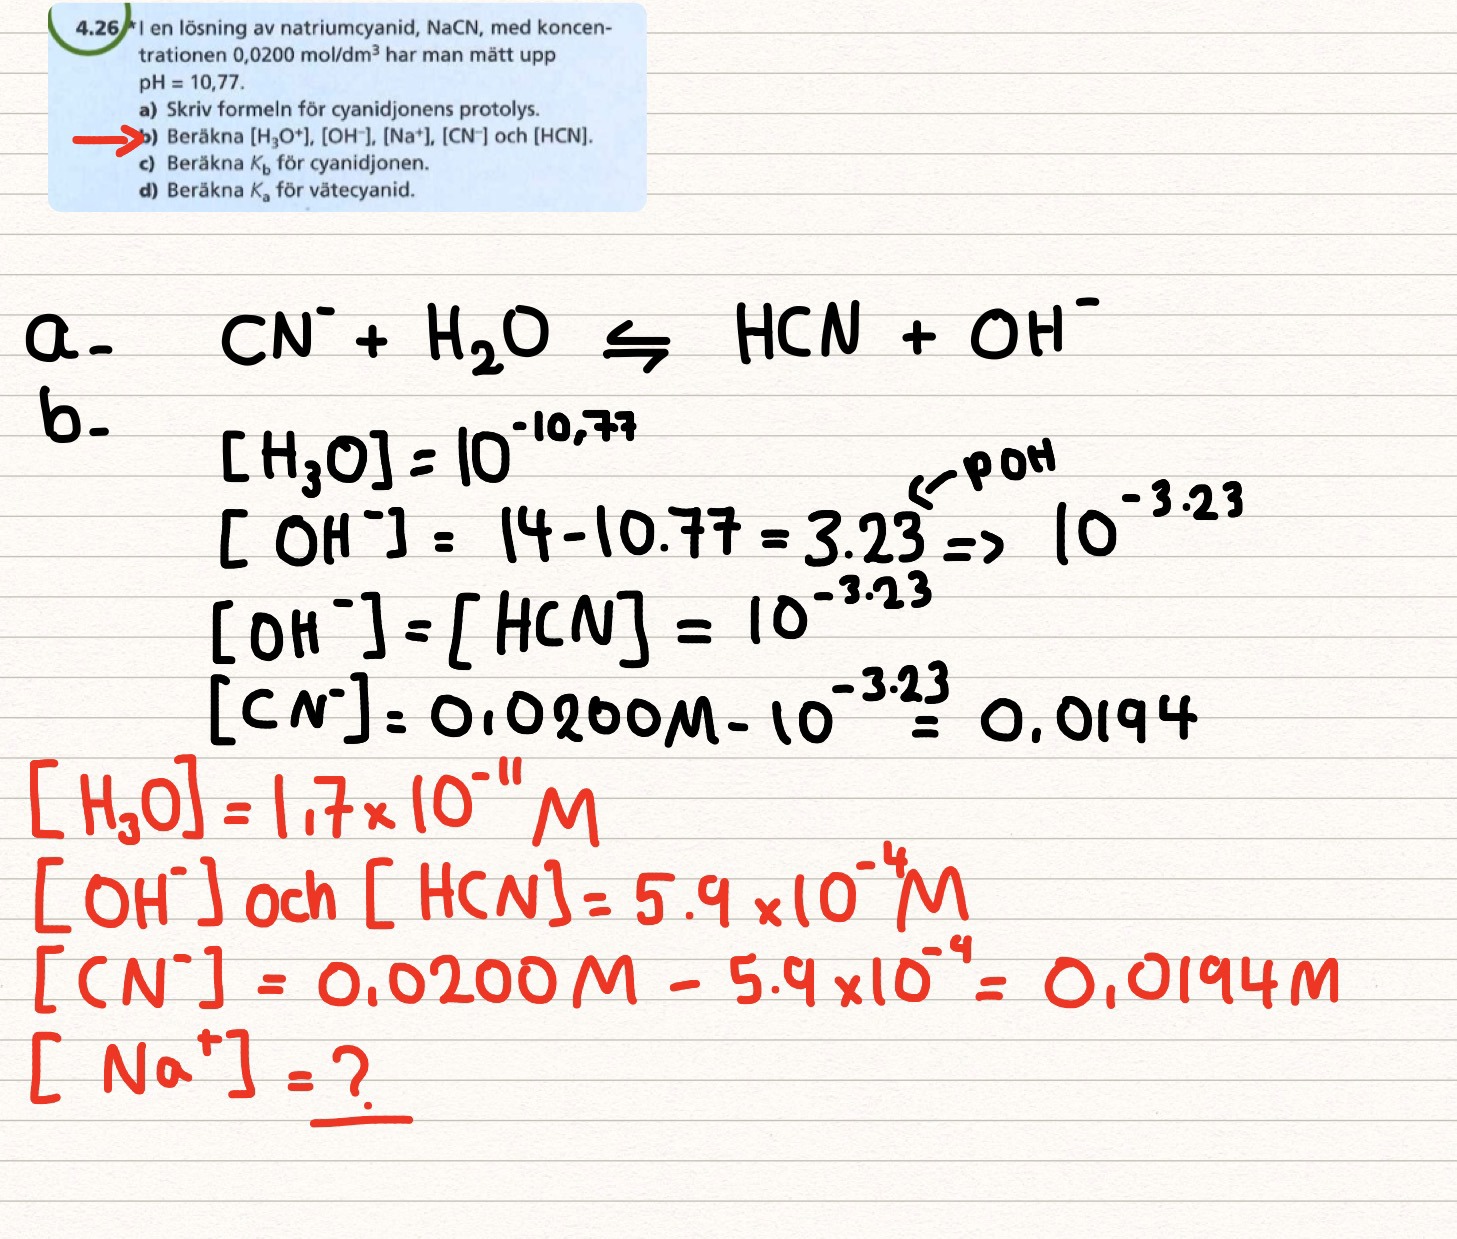 4.26 * I en lösning av natriumcyanid, NaCN, med koncen-
trationen 0,0200 mol/dm³ har man mätt upp
pH = 10,77.
a) Skriv formeln för cyanidjonens protolys.
b) Beräkna [H₃O⁺], [OH⁻], [Na⁺], [CN⁻] och [HCN].
c) Beräkna K_b för cyanidjonen.
d) Beräkna K_a för vätecyanid.
a- CN⁻ + H₂O ⇋ HCN + OH⁻
b-
[H₃O] = 10^-10,77
pOH
[OH⁻] = 14-10.77 = 3.23 => 10^-3.23
[OH⁻] = [HCN] = 10^-3.23
[CN⁻] = 0,0200M - 10^-3.23 = 0,0194
[H₃O] = 1,7 x 10^-11 M
[OH⁻] och [HCN] = 5.9 x 10^-4 M
[CN⁻] = 0,0200 M - 5.9 x 10^-4 = 0,0194 M
[Na⁺] = ?